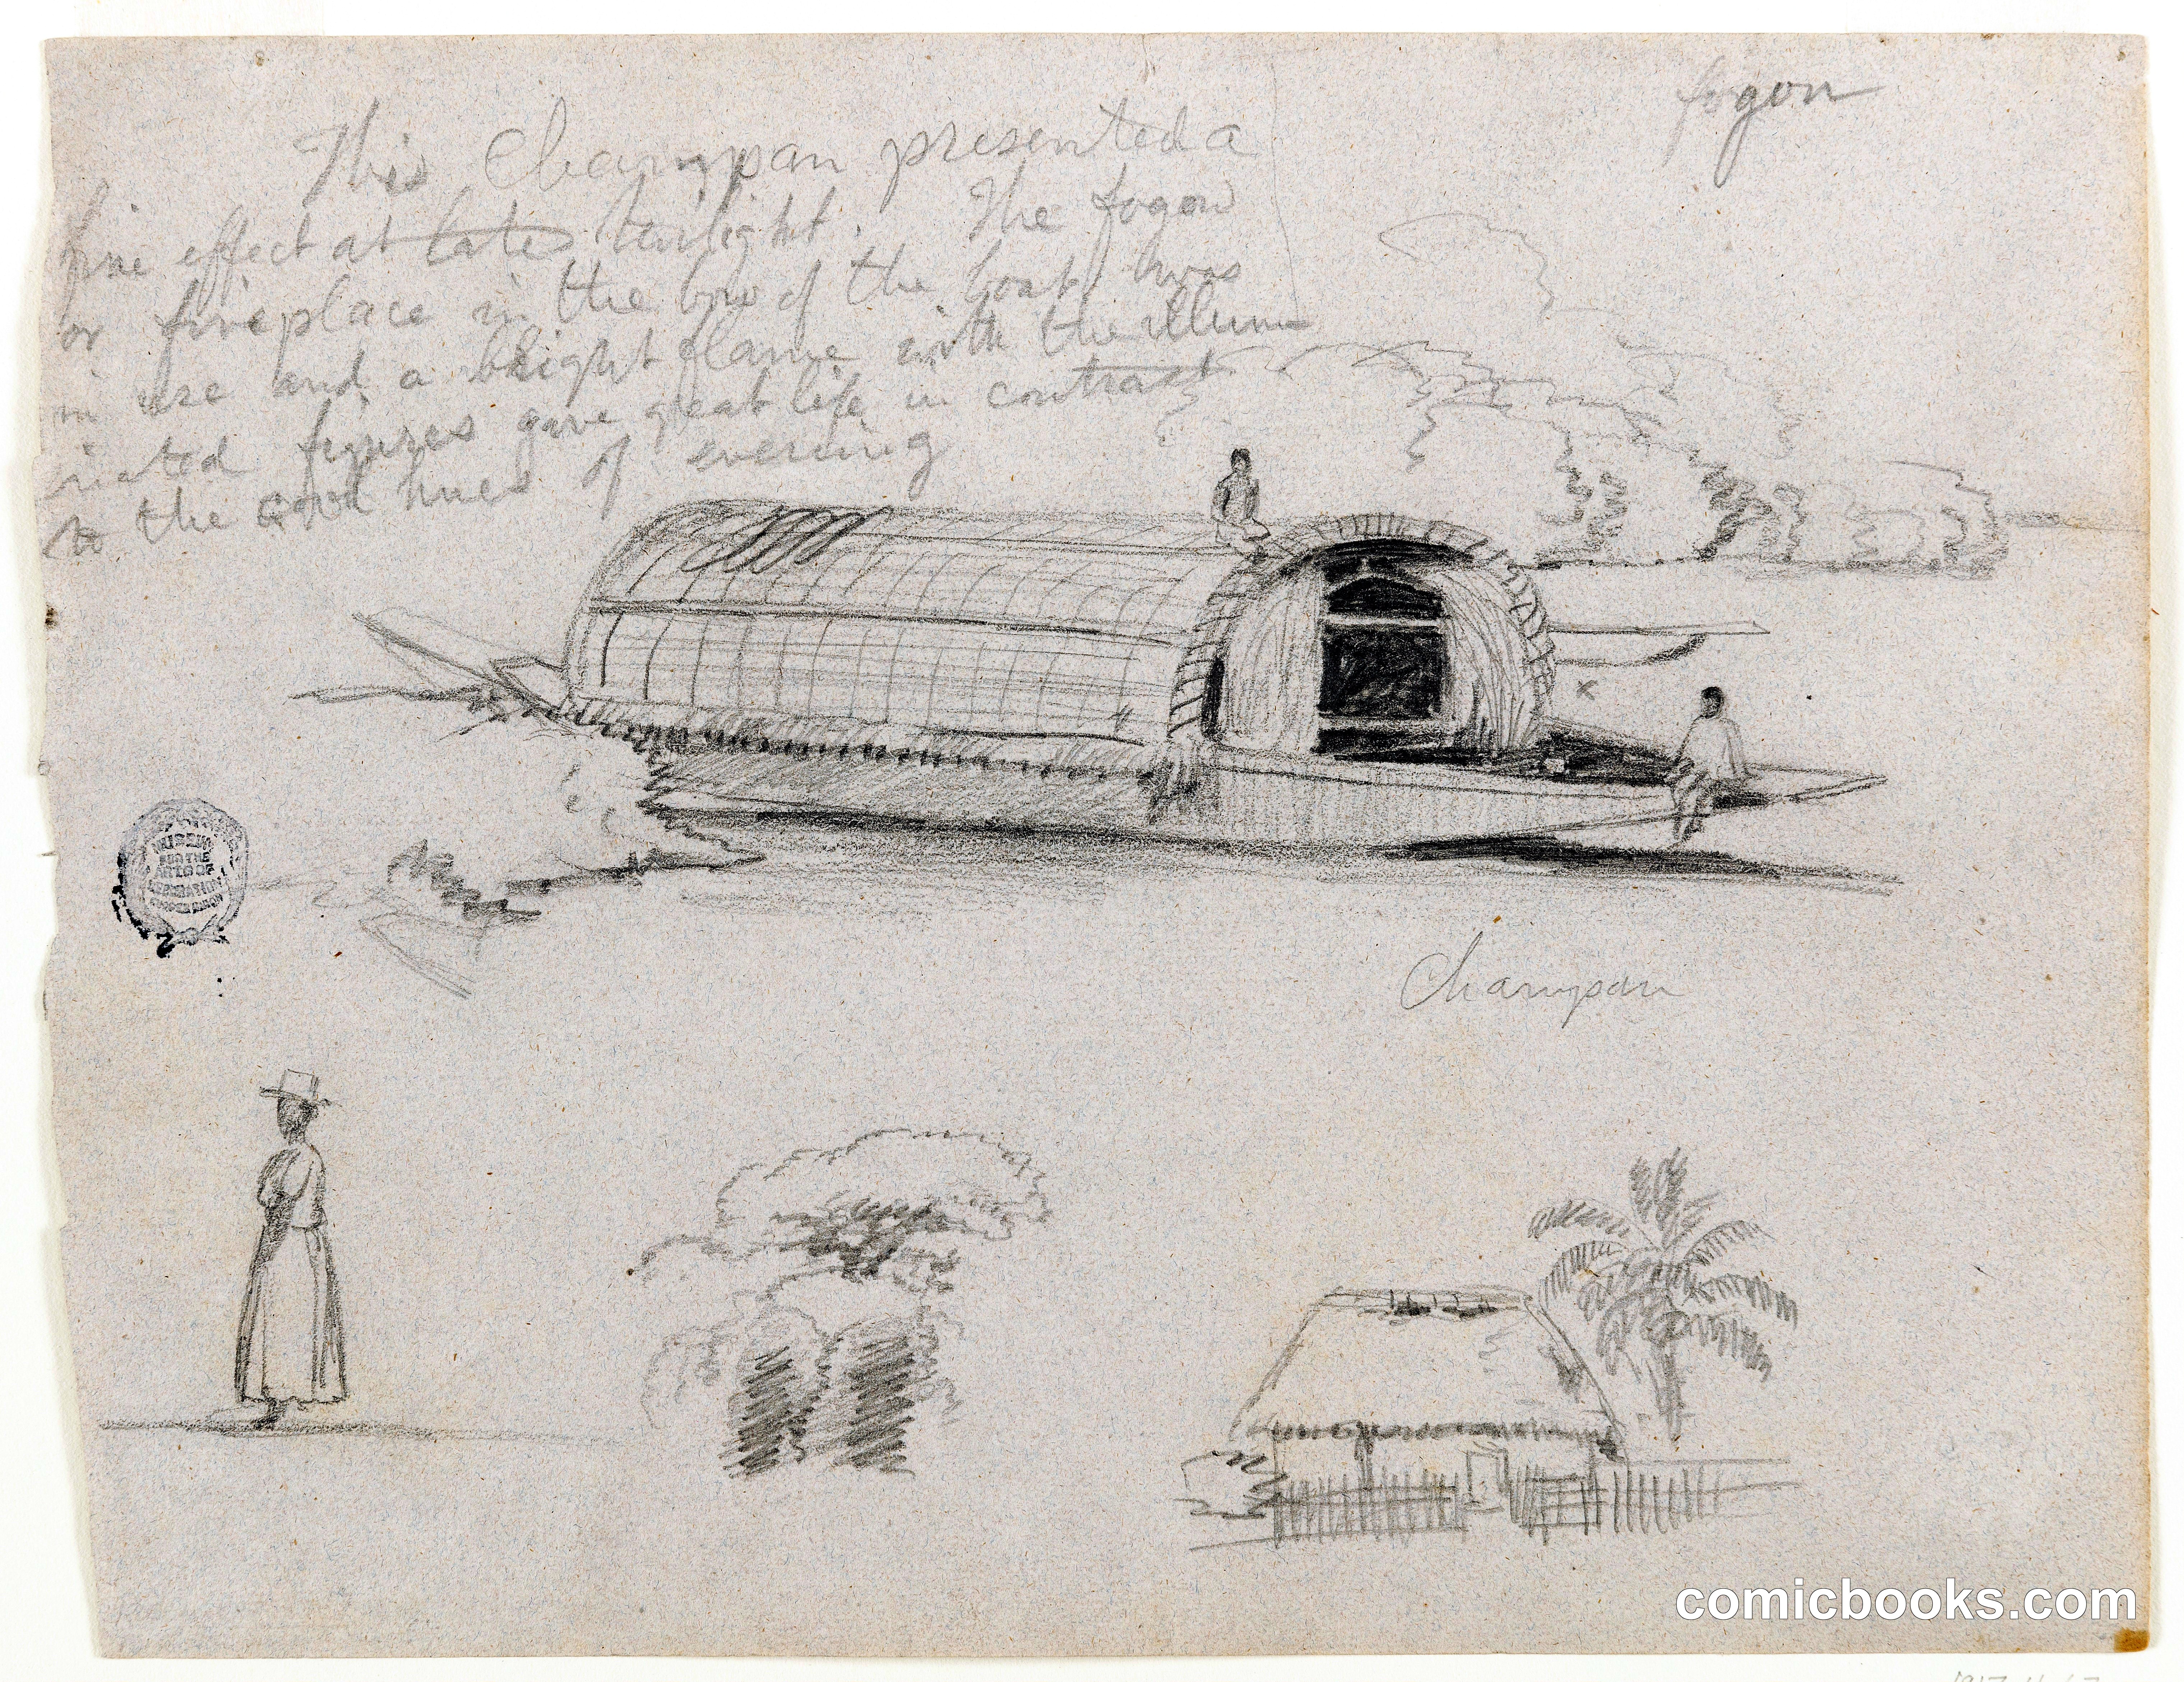 fogon
This Champan presented a
fine effect at late twilight. The fogon
or fireplace in the bow of the boat was
in use and a bright flame with the illum
inated figures gave great life in contrast
to the hues of evening
Champan
MUSEUM
FOR THE
ARTS OF
DECORATION
COOPER UNION
comicbooks.com